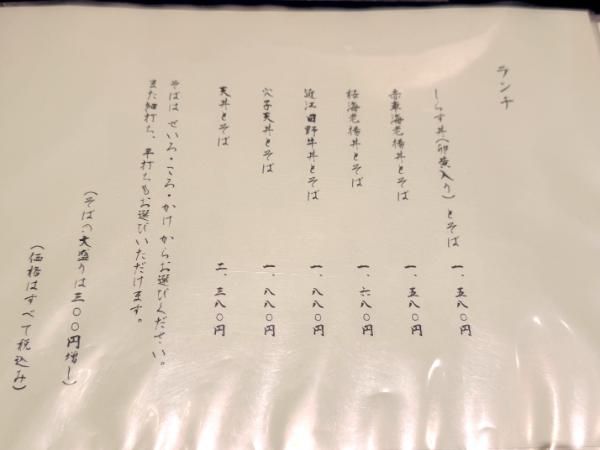 ランチ
しらす丼(卵黄入り)とそば 一、五八〇円
赤車海老揚丼とそば 一、五八〇円
桜海老揚丼とそば 一、六八〇円
近江日野牛丼とそば 一、八八〇円
穴子天丼とそば 一、八八〇円
天丼とそば 二、三八〇円
そばは せいろ・ころ・かけ からお選びください。
また細打ち、平打ちもお選びいただけます。
(そばの大盛りは三〇〇円増し)
(価格はすべて税込み)